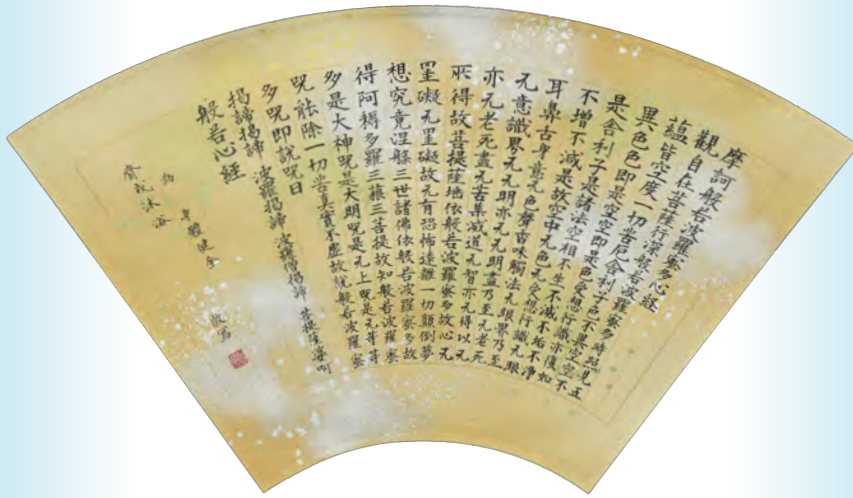 摩訶般若波羅蜜多心経
觀自在菩薩行深般若波羅蜜多時照見五
蘊皆空度一切苦厄舎利子色不異空空不
異色色即是空空即是色受想行識亦復如
是舎利子是諸法空相不生不滅不垢不浄
不増不減是故空中无色无受想行識无眼
耳鼻舌身意无色聲香味觸法无眼界乃至
无意識界无无明亦无无明盡乃至无老死
亦无老死盡无苦集滅道无智亦无得以无
所得故菩提薩埵依般若波羅蜜多故心无
罣礙无罣礙故无有恐怖遠離一切顛倒夢
想究竟涅槃三世諸佛依般若波羅蜜多故
得阿耨多羅三藐三菩提故知般若波羅蜜
多是大神呪是大明呪是无上呪是无等等
呪能除一切苦真實不虚故說般若波羅蜜
多呪即說呪曰
揭諦揭諦 波羅揭諦 波羅僧揭諦 菩提薩婆呵
般若心経
為 身體健全
齋戒沐浴 敬写